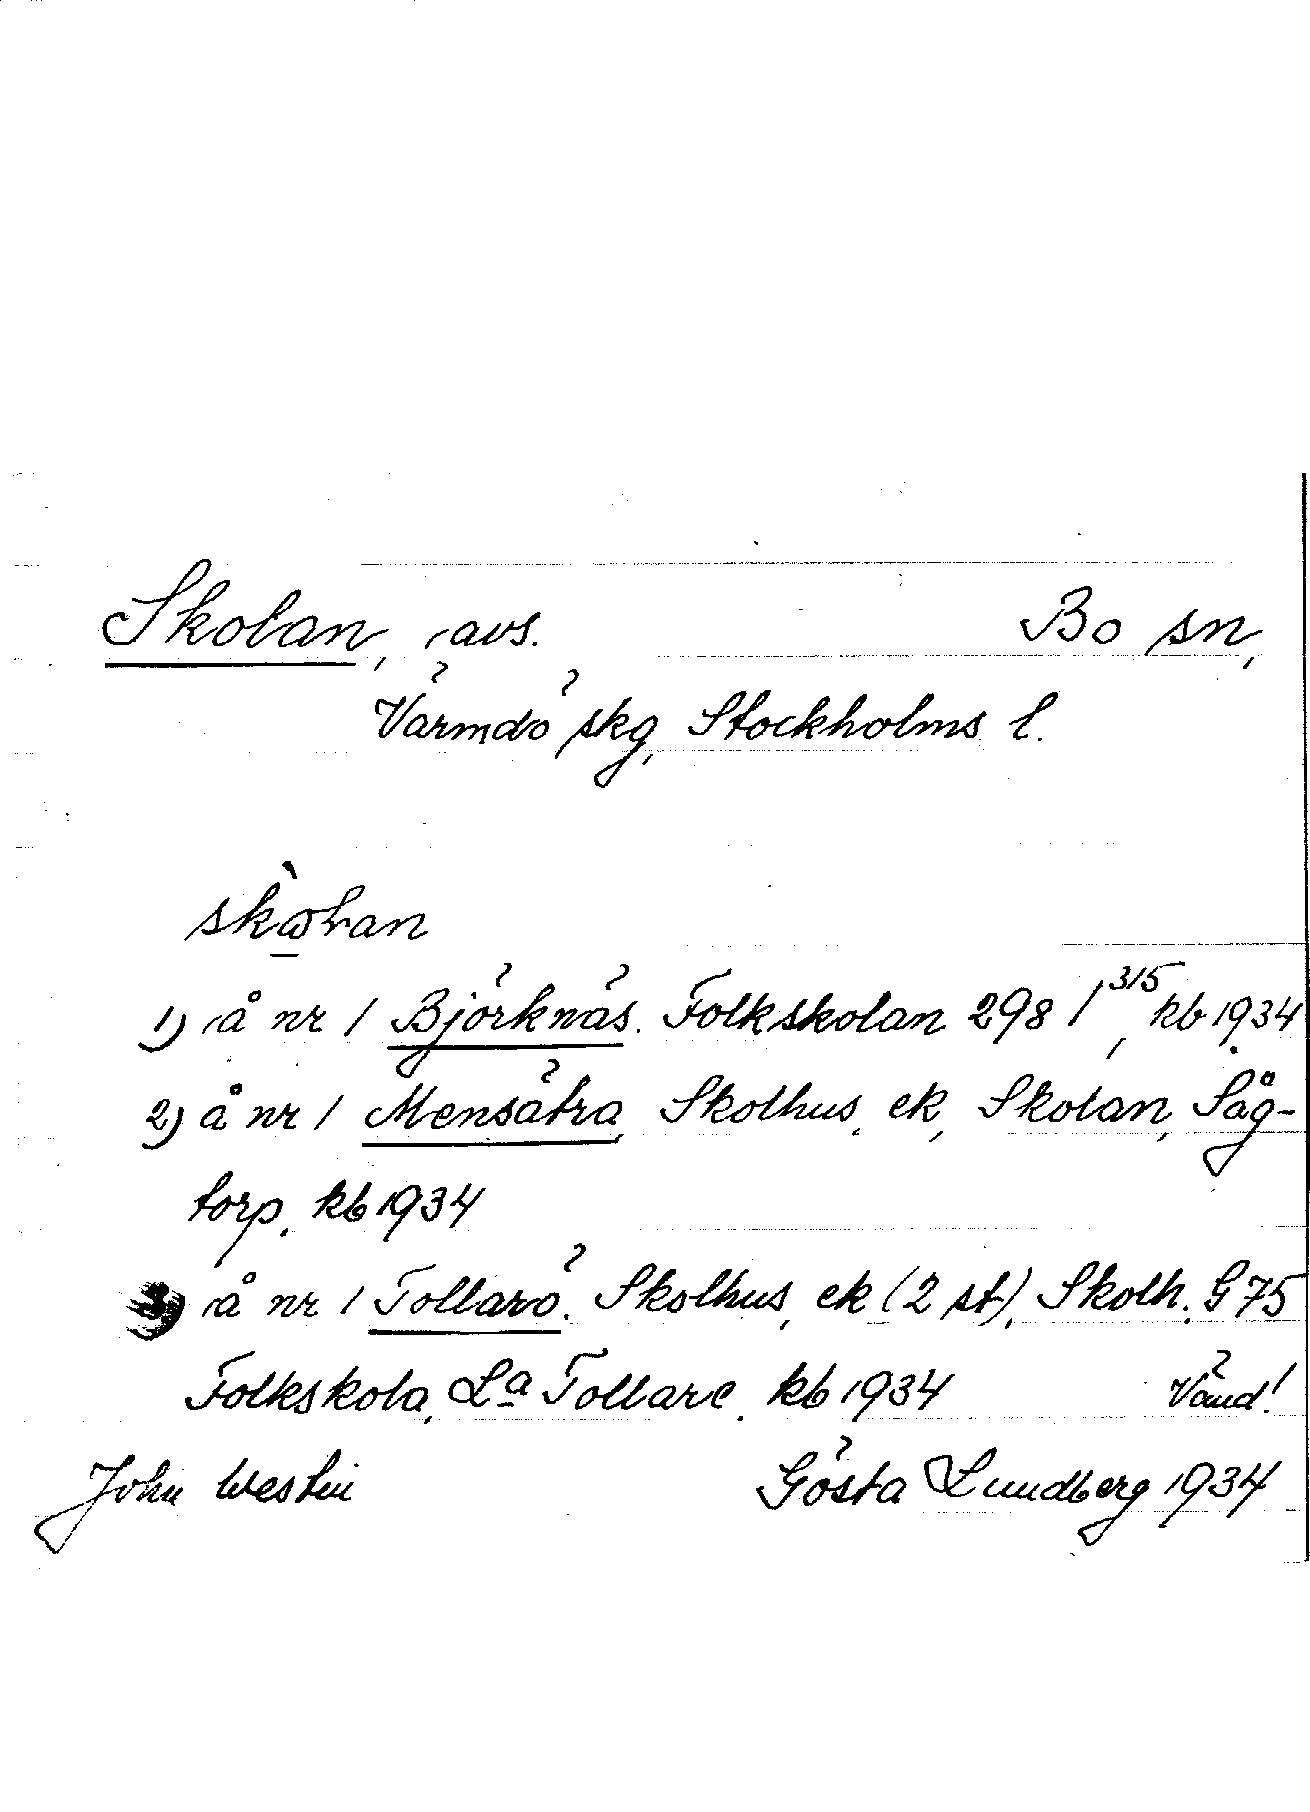 Skolan, avs. Bo sn,
Värmdö skg, Stockholms l.
skὼlan
1) å nr 1 Björknäs. Folkskolan 298 1³¹⁵, kb 1934
2) å nr 1 Mensätra, Skolhus, ek, Skolan, Såg-
torp. kb 1934
3) å nr 1 Tollarö. Skolhus, ek (2 st), Skolh. G 75
Folkskola, La Tollare. kb 1934 Vänd!
John Westin Gösta Lundberg 1934